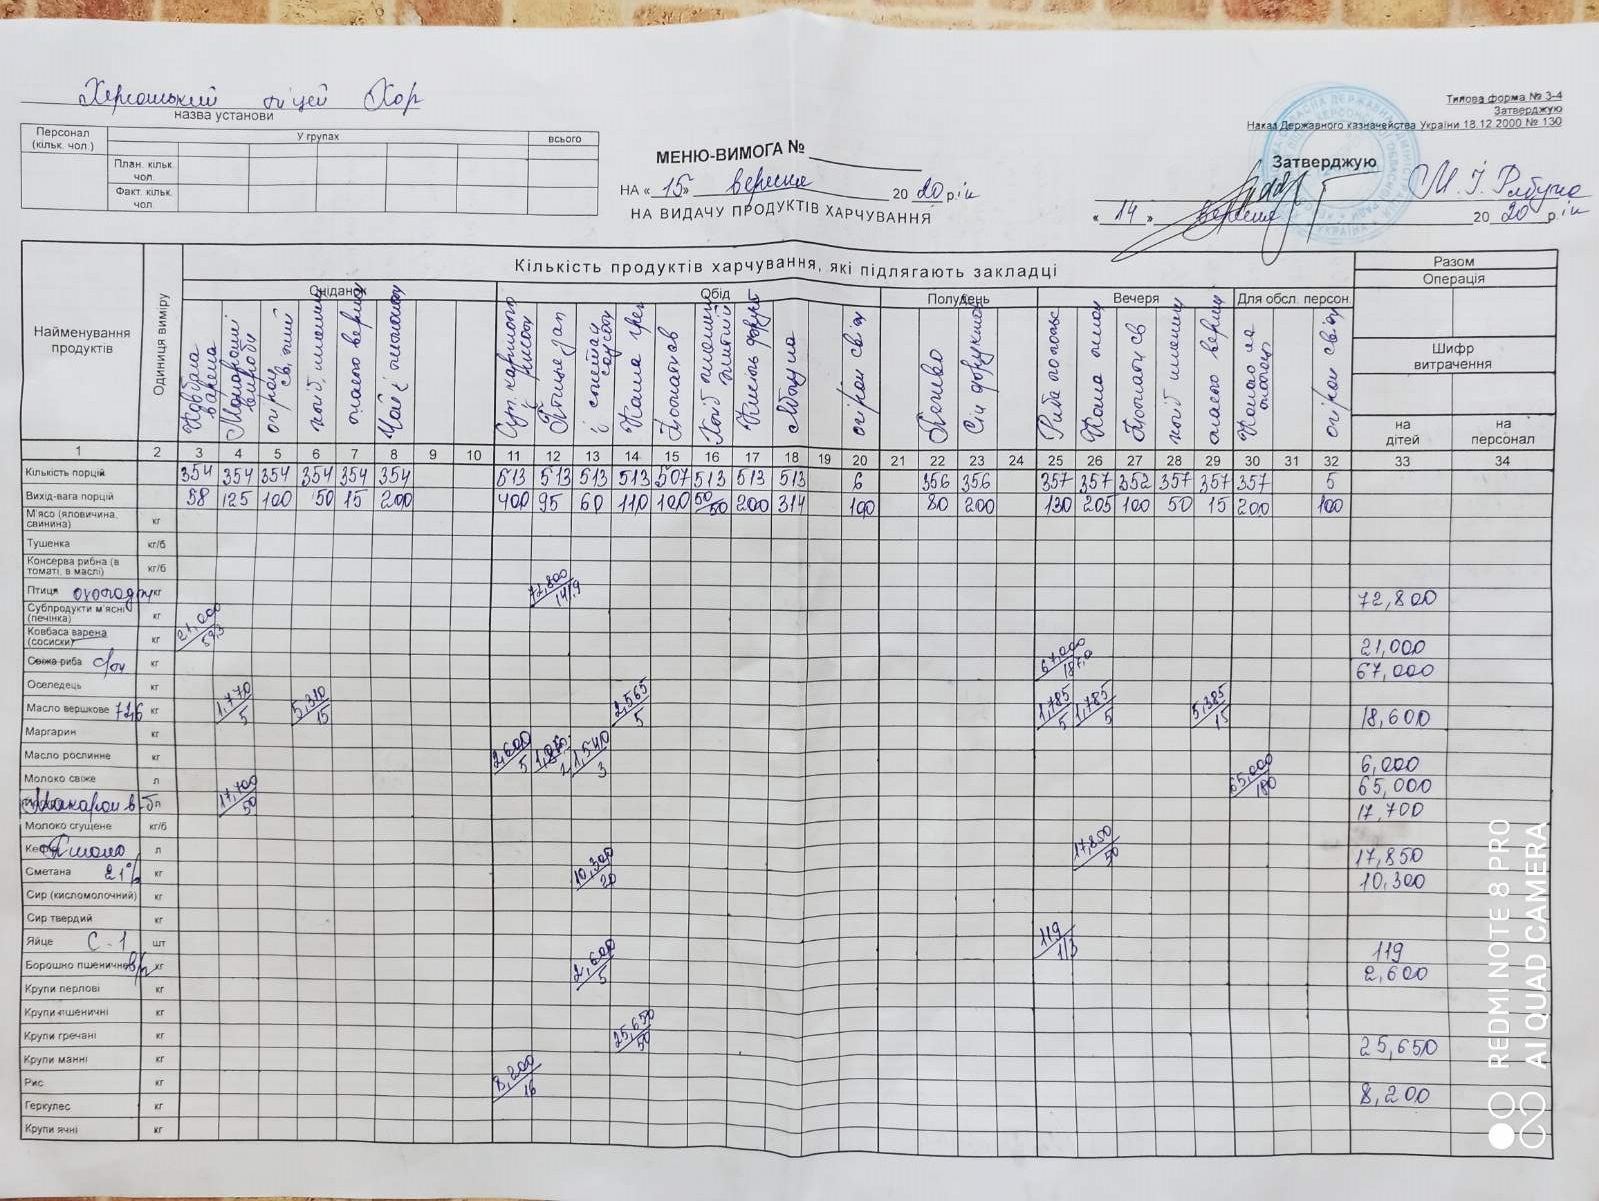 Херсонський ліцей ХОР
назва установи
Типова форма № 3-4
Затверджую
Наказ Державного казначейства України 18.12.2000 № 130
Персонал (кільк. чол.) У групах всього
План. кільк. чол.
Факт. кільк. чол.
МЕНЮ-ВИМОГА №
НА « 15 » вересня 20 20 рік
НА ВИДАЧУ ПРОДУКТІВ ХАРЧУВАННЯ
Затверджую
« 14 » вересня 20 20 рік
Найменування продуктів
Одиниця виміру
Кількість продуктів харчування, які підлягають закладці
Разом
Операція
Сніданок Обід Полудень Вечеря Для обсл. персон.
Шифр витрачення
на дітей на персонал
Ковбаса варена
Макаронні вироби
огірок свіжий
Чай з
Каша греч
огірки свіжі
Печиво
Какао на молоці
огірки свіжі
1 2 3 4 5 6 7 8 9 10 11 12 13 14 15 16 17 18 19 20 21 22 23 24 25 26 27 28 29 30 31 32 33 34
Кількість порцій 354 354 354 354 354 354 513 513 513 513 507 513 513 513 6 356 356 357 357 352 357 357 357 5
Вихід-вага порцій 58 125 100 50 15 200 400 95 60 110 100 50/50 200 314 100 80 200 130 205 100 50 15 200 100
М'ясо (яловичина, свинина) кг
Тушенка кг/б
Консерва рибна (в томаті, в маслі) кг/б
Птиця кг 72,800/141,9 72,800
Субпродукти м'ясні (печінка) кг
Ковбаса варена (сосиски) кг 21,000/59,3 21,000
Свіжа риба кг 67,000/187,0 67,000
Оселедець кг
Масло вершкове 72,6 кг 1,770/5 5,310/15 2,565/5 1,785/5 1,785/5 5,385/15 18,600
Маргарин кг
Масло рослинне кг 2,600/5 1,540/3 6,000
Молоко свіже л 65,000/180 65,000
Макарон в-б л 17,700/50 17,700
Молоко сгущене кг/б
Пшоно л 17,850/50 17,850
Сметана 21% кг 10,300/20 10,300
Сир (кисломолочний) кг
Сир твердий кг
Яйце С-1 шт 119/1/3 119
Борошно пшеничне в/г кг 2,600/5 2,600
Крупи перлові кг
Крупи пшеничні кг
Крупи гречані кг 25,650/50 25,650
Крупи манні кг
Рис кг 8,200/16 8,200
Геркулес кг
Крупи ячні кг
REDMI NOTE 8 PRO
AI QUAD CAMERA